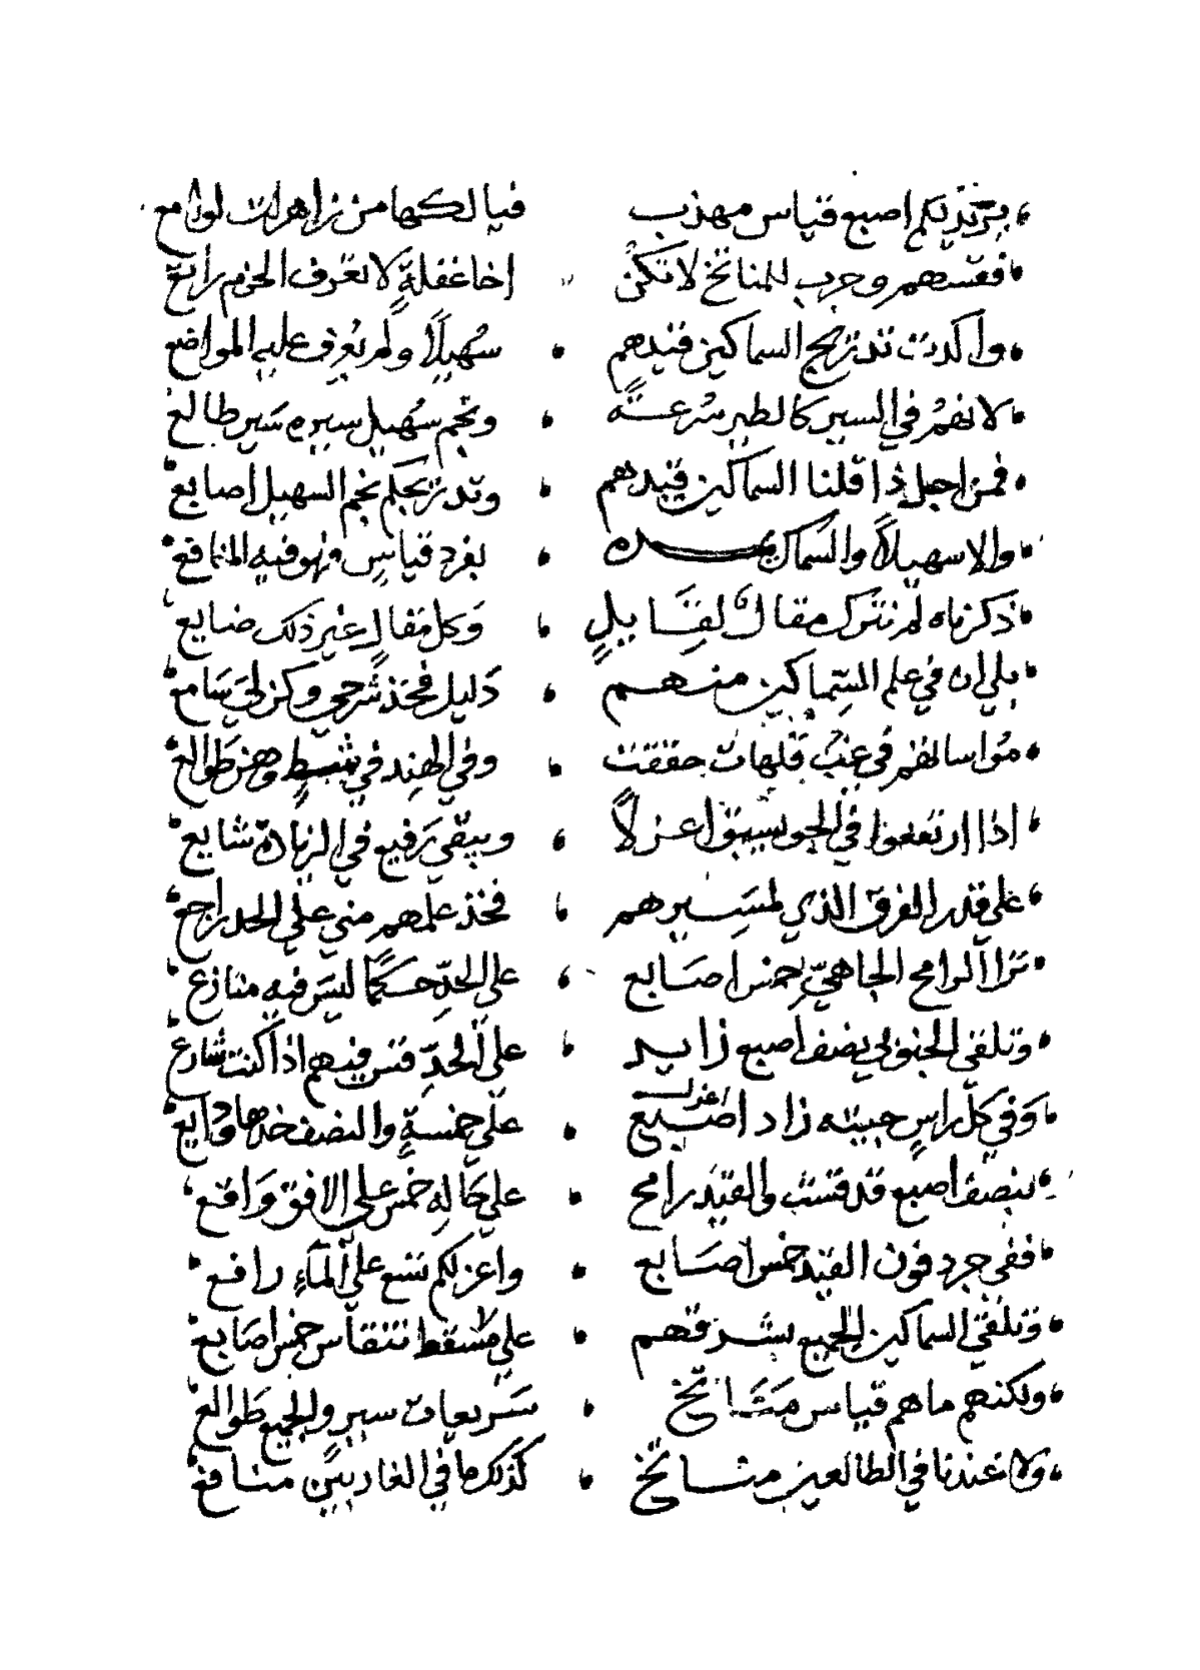 يزيدكم اصبع قياس مهذب فيا لكها من زاهرات لوامع
فقسهم وجرب للمناتخ لا تكن اخا غفلة لا تعرف الحزم رايع
وان كدت تدتريح السماكين قيدهم سهيلا ولم يعرف عليه المواضع
لانهم في السير كالطير سرعة ونجم سهيل سيره سير طالع
فمن اجل ذا قلنا السماكين قيدهم وتدتريحكم نجم السهيل اصابع
والا سهيلا والسماك يفرد قياس وهو فيه المنافع
ذكرناه لم نترك مقال لقايل وكل مقال غير ذلك ضايع
بلي ان في علم السماكين منهم دليل فخذ شرحي وكن لي سامع
في غب قلهات حققت وفي الهند في وهن طوالع
اذا ارتفعوا في الجو يسبق اعزلا ويبقي رفيع في الزيادة شايع
علي قدر الفرق الذي لمسيرهم فخذ علمهم مني علي الحد راجع
ترا الرامح الجاهي خمس اصابع علي الحد حكما ليس فيه منازع
وتلقي الجنوبي نصف اصبع زايد علي الحد قس فيهم اذا كنت شارع
وفي كل راس جيته زاد اعزل اصبع علي خمسة والنصف خذها
بنصف اصبع قد قست والقيد رامح علي حاله خمس علي الافق واقع
ففي جرد فون القيد خمس اصابع واعزلكم تسع علي المآء رافع
وتلقي السماكين الجميع بشرقهم علي مسقط تنقاس خمس اصابع
ولكنهم ما هم قياس مناتخ سريعات سير والجميع طوالع
ولا عندنا في الطالعين مناتخ كذلك ما في الغاربين منافع